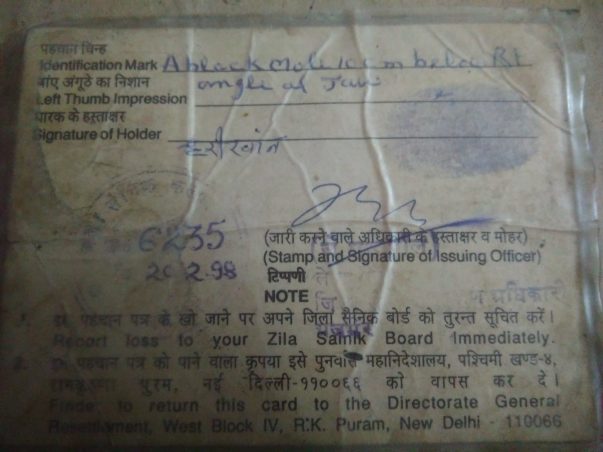 पहचान चिन्ह
Identification Mark A black mole 10 cm below Rt
बांए अंगूठे का निशान angle of Jaw
Left Thumb Impression
धारक के हस्ताक्षर
Signature of Holder
6235
20.2.98
(जारी करने वाले अधिकारी के हस्ताक्षर व मोहर)
(Stamp and Signature of Issuing Officer)
टिप्पणी
NOTE
अधिकारी
1. इस पहचान पत्र के खो जाने पर अपने जिला सैनिक बोर्ड को तुरन्त सूचित करें।
Report loss to your Zila Sainik Board Immediately.
2. इस पहचान पत्र को पाने वाला कृपया इसे पुनर्वास महानिदेशालय, पश्चिमी खण्ड-४,
रामकृष्णा पुरम, नई दिल्ली-११००६६ को वापस कर दे।
Finder to return this card to the Directorate General
Resettlement, West Block IV, R.K. Puram, New Delhi - 110066